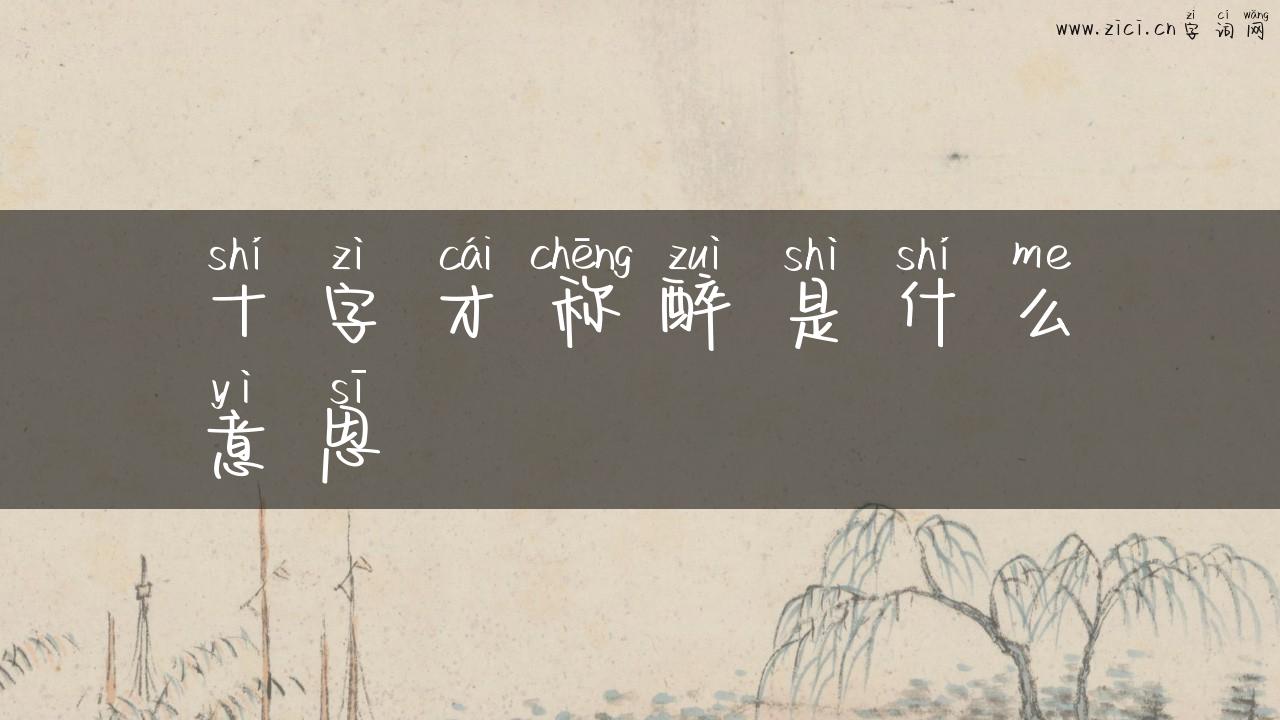 www.zici.cn 字词网
zì cí wǎng
shí zì cái chēng zuì shì shí me
十字才称醉是什么
yì sī
意思